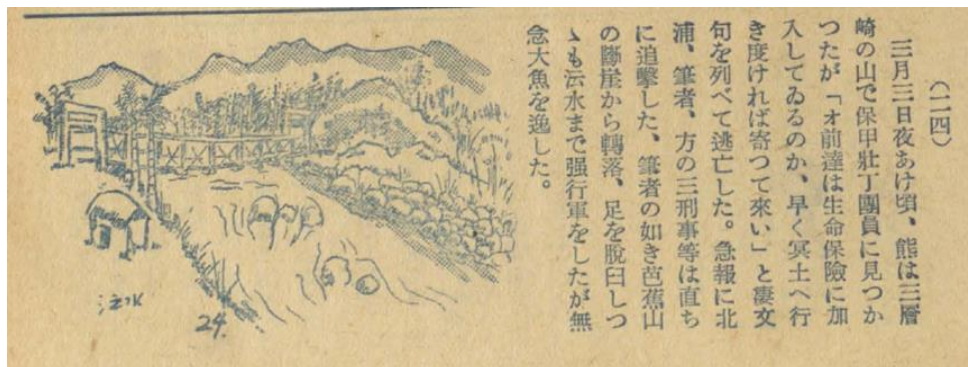 (二四)
三月三日夜あけ頃、熊は三層
崎の山で保甲壯丁團員に見つか
つたが「オ前達は生命保險に加
入してゐるのか、早く冥土へ行
き度ければ寄つて來い」と凄文
句を列べて逃亡した。急報に北
浦、筆者、方の三刑事等は直ち
に追擊した、筆者の如き芭蕉山
の斷崖から轉落、足を脫臼しつ
ゝも沄水まで强行軍をしたが無
念大魚を逸した。
沄水
24.